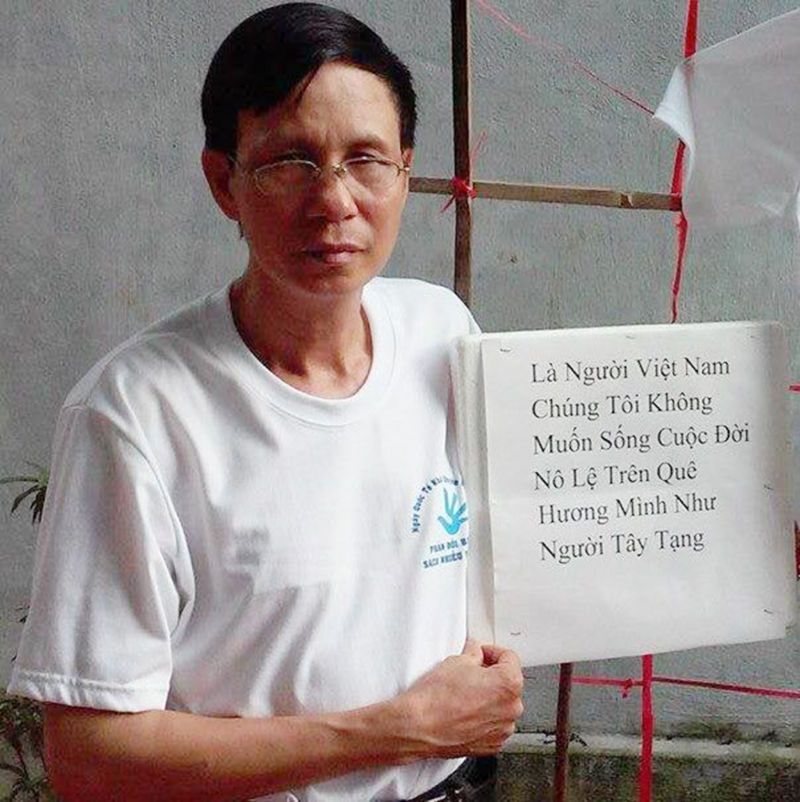 Là Người Việt Nam
Chúng Tôi Không
Muốn Sống Cuộc Đời
Nô Lệ Trên Quê
Hương Mình Như
Người Tây Tạng
Ngày Quốc Tế
SẠCH